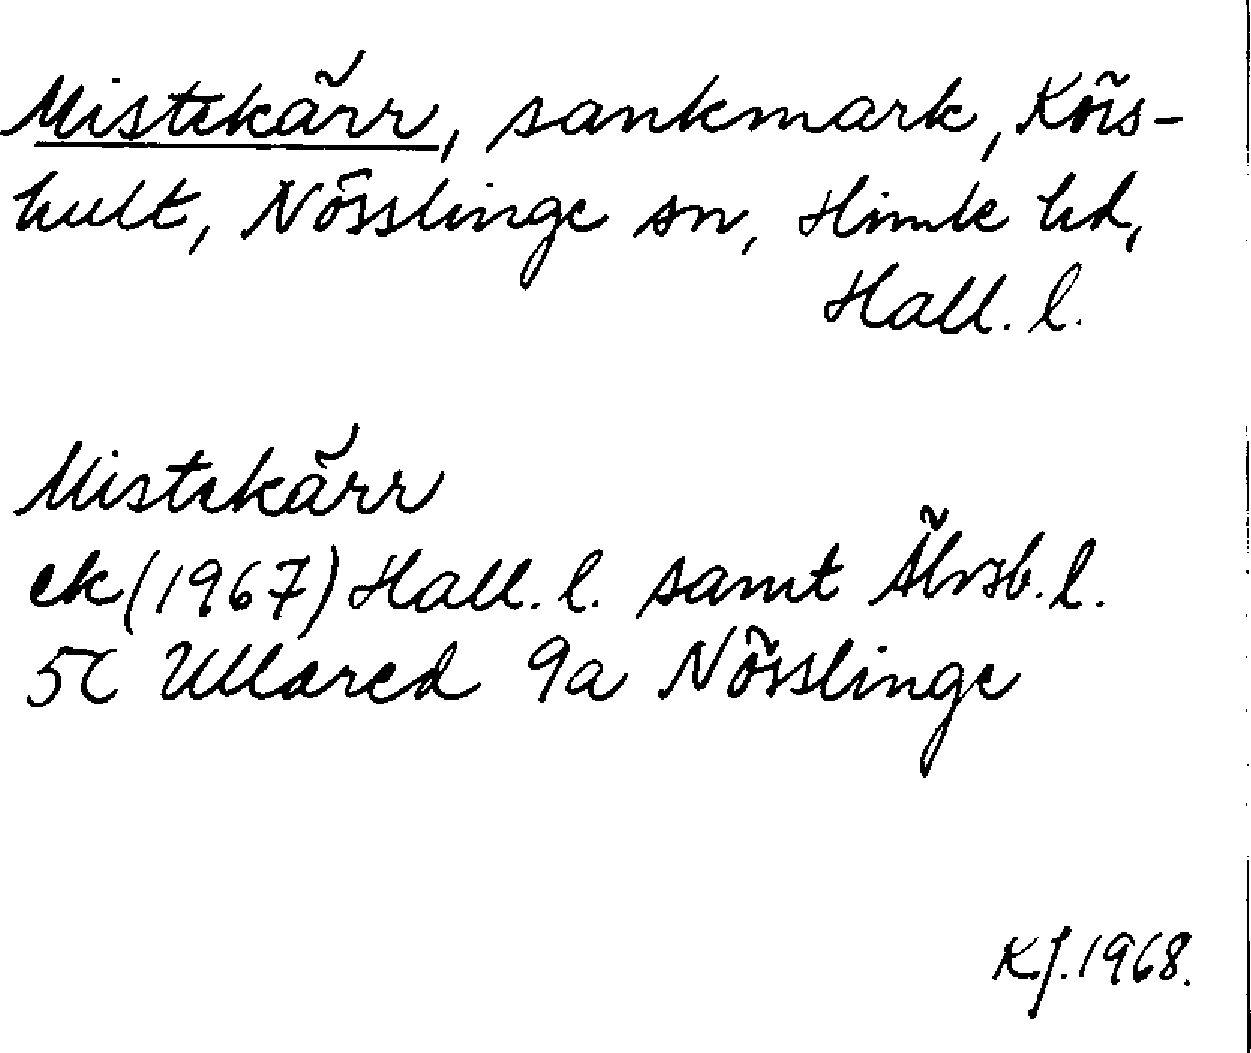 Mistekärr, sankmark, Köis-
hult, Nösslinge sn, Himle hd,
Hall. l.
Mistekärr
ek (1967) Hall. l. samt Älvsb. l.
5C Ullared 9a Nösslinge
KJ. 1968.